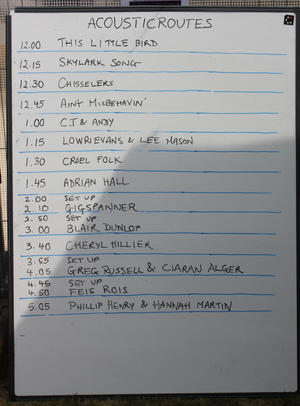 ACOUSTICROUTES
12.00 THIS LITTLE BIRD
12.15 SKYLARK SONG
12.30 CHISSELERS
12.45 AINT MISBEHAVIN'
1.00 CJ & ANDY
1.15 LOWRI EVANS & LEE MASON
1.30 CREEL FOLK
1.45 ADRIAN HALL
2.00 SET UP
2.10 GIGSPANNER
2.50 SET UP
3.00 BLAIR DUNLOP
3.40 CHERYL HILLIER
3.55 SET UP
4.05 GREG RUSSELL & CIARAN ALGER
4.45 SET UP
4.50 FEIS ROIS
5.05 PHILLIP HENRY & HANNAH MARTIN